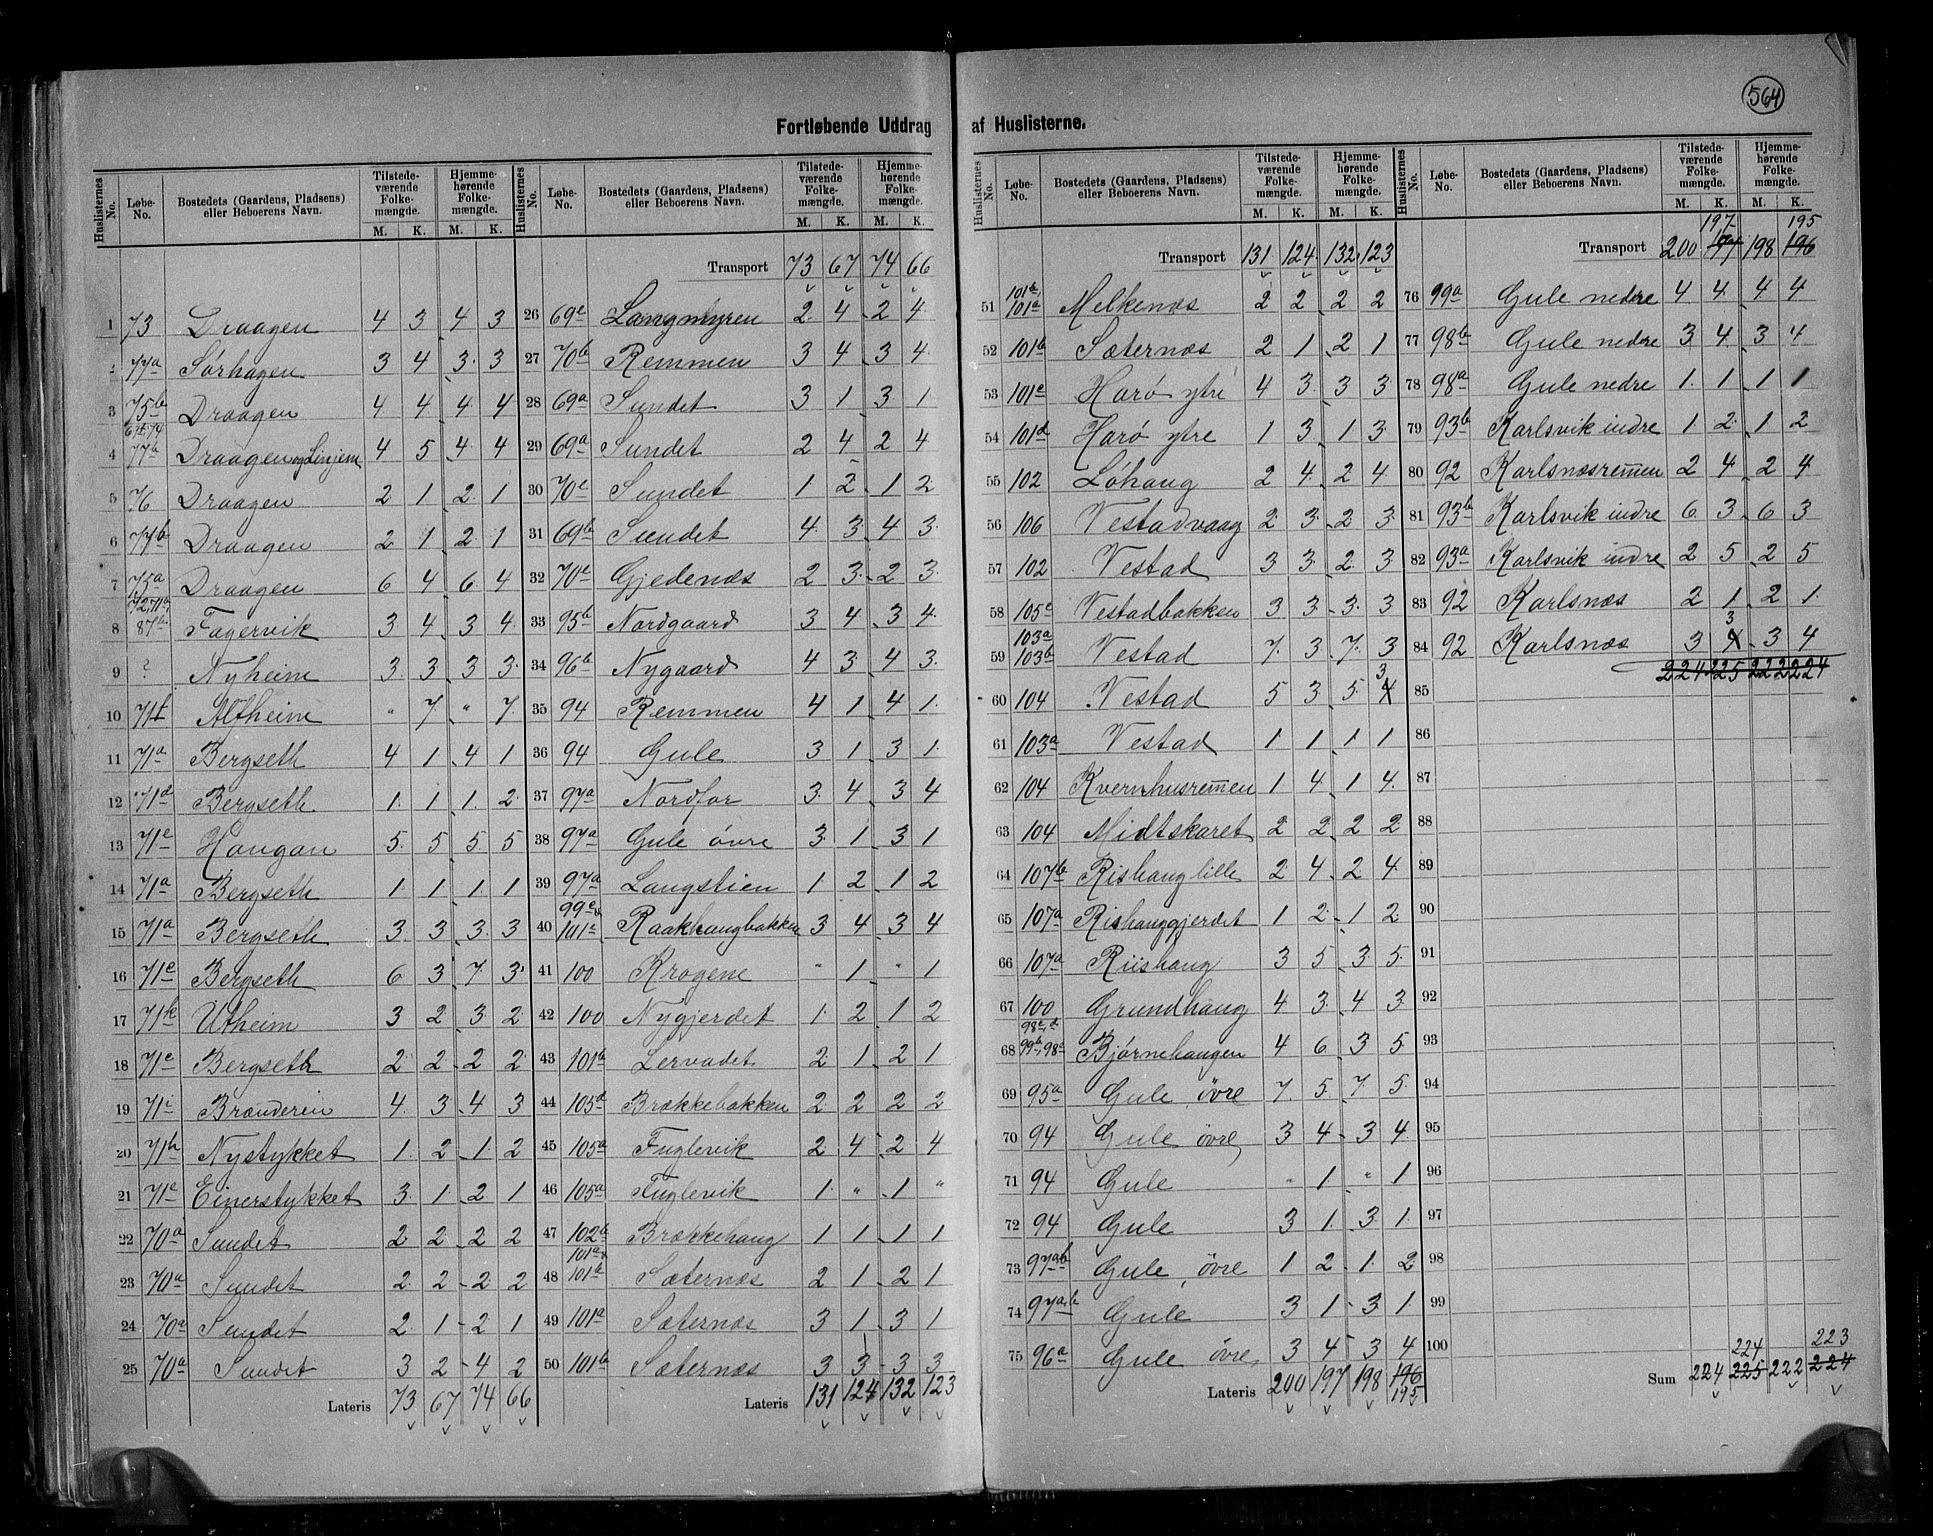 564
Fortløbende Uddrag af Huslisterne.
Huslisternes No. Løbe-No. Bostedets (Gaardens, Pladsens) eller Beboerens Navn. Tilstedeværende Folkemængde. M. K. Hjemmehørende Folkemængde. M. K.
1 73 Draagen 4 3 4 3
2 77a Sørhagen 3 4 3 3
3 75b Draagen 4 4 4 4
4 77a Draagen og Linjem 4 5 4 4
5 76 Draagen 2 1 2 1
6 77b Draagen 2 1 2 1
7 75a Draagen 6 4 6 4
8 72, 71a, 87b Fagervik 3 4 3 4
9 ? Nyheim 3 3 3 3
10 71f Altheim " 7 " 7
11 71a Bergseth 4 1 4 1
12 71d Bergseth 1 1 1 2
13 71e Haugan 5 5 5 5
14 71a Bergseth 1 1 1 1
15 71a Bergseth 3 3 3 3
16 71e Bergseth 6 3 7 3
17 71k Utheim 3 2 3 2
18 71e Bergseth 2 2 2 2
19 71i Brænderein 4 3 4 3
20 71h Nystykket 1 2 1 2
21 71e Einerstykket 3 1 2 1
22 70a Sundet 2 2 2 2
23 70a Sundet 2 2 2 2
24 70a Sundet 2 1 2 1
25 70a Sundet 3 2 4 2
Lateris 73 67 74 66
Huslisternes No. Løbe-No. Bostedets (Gaardens, Pladsens) eller Beboerens Navn. Tilstedeværende Folkemængde. M. K. Hjemmehørende Folkemængde. M. K.
Transport 73 67 74 66
26 69c Langmyren 2 4 2 4
27 70b Remmen 3 4 3 4
28 69a Sundet 3 1 3 1
29 69a Sundet 2 4 2 4
30 70c Sundet 1 2 1 2
31 69b Sundet 4 3 4 3
32 70c Gjedenæs 2 3 2 3
33 95b Nordgaard 3 4 3 4
34 96b Nygaard 4 3 4 3
35 94 Remmen 4 1 4 1
36 94 Gule 3 1 3 1
37 97a Nordfor 3 4 3 4
38 97a Gule øvre 3 1 3 1
39 97a Langstien 1 2 1 2
40 99c, 101c Raakhaugbakken 3 4 3 4
41 100 Krogene " 1 " 1
42 100 Nygjerdet 1 2 1 2
43 101b Lervadet 2 1 2 1
44 105d Brækkebakken 2 2 2 2
45 105a Fuglevik 2 4 2 4
46 105a Fuglevik 1 " 1 "
47 102b Brækkehaug 1 1 1 1
48 101a, 101b Sæternæs 2 1 2 1
49 101a Sæternæs 3 1 3 1
50 101b Sæternæs 3 3 3 3
Lateris 131 124 132 123
Huslisternes No. Løbe-No. Bostedets (Gaardens, Pladsens) eller Beboerens Navn. Tilstedeværende Folkemængde. M. K. Hjemmehørende Folkemængde. M. K.
Transport 131 124 132 123
51 101b, 101a Melkenæs 2 2 2 2
52 101b Sæternæs 2 1 2 1
53 101c Harø ytre 4 3 3 3
54 101d Harø ytre 1 3 1 3
55 102 Løhaug 2 4 2 4
56 106 Vestadvaag 2 3 2 3
57 102 Vestad 3 3 2 3
58 105c Vestadbakken 3 3 3 3
59 103a 103b Vestad 7 3 7 3
60 104 Vestad 5 3 5 4 3
61 103a Vestad 1 1 1 1
62 104 Kvernhusremen 1 4 1 4
63 104 Midtskaret 2 2 2 2
64 107b Rishaug lille 2 4 2 4
65 107a Rishauggjerdet 1 2 1 2
66 107a Riishaug 3 5 3 5
67 100 Grundhaug 4 3 4 3
68 98c, d 99b, 98c Bjørnehaugen 4 6 3 5
69 95a Gule øvre 7 5 7 5
70 94 Gule øvre 3 4 3 4
71 94 Gule " 1 " 1
72 94 Gule 3 1 3 1
73 97ab Gule øvre 1 2 1 2
74 97a,b Gule 3 1 3 1
75 96a Gule øvre 3 4 3 4
Lateris 200 197 198 196
195
Huslisternes No. Løbe-No. Bostedets (Gaardens, Pladsens) eller Beboerens Navn. Tilstedeværende Folkemængde. M. K. Hjemmehørende Folkemængde. M. K.
197 195
Transport 200 197 198 196
76 99a Gule nedre 4 4 4 4
77 98b Gule nedre 3 4 3 4
78 98a Gule nedre 1 1 1 1
79 93b Karlsvik indre 1 2 1 2
80 92 Karlsnæsremen 2 4 2 4
81 93b Karlsvik indre 6 3 6 3
82 93a Karlsvik indre 2 5 2 5
83 92 Karlsnæs 2 1 2 1
84 92 Karlsnæs 3 4 3 3 4
224 225 222 224
85
86
87
88
89
90
91
92
93
94
95
96
97
98
99
100
224 223
Sum 224 225 222 224